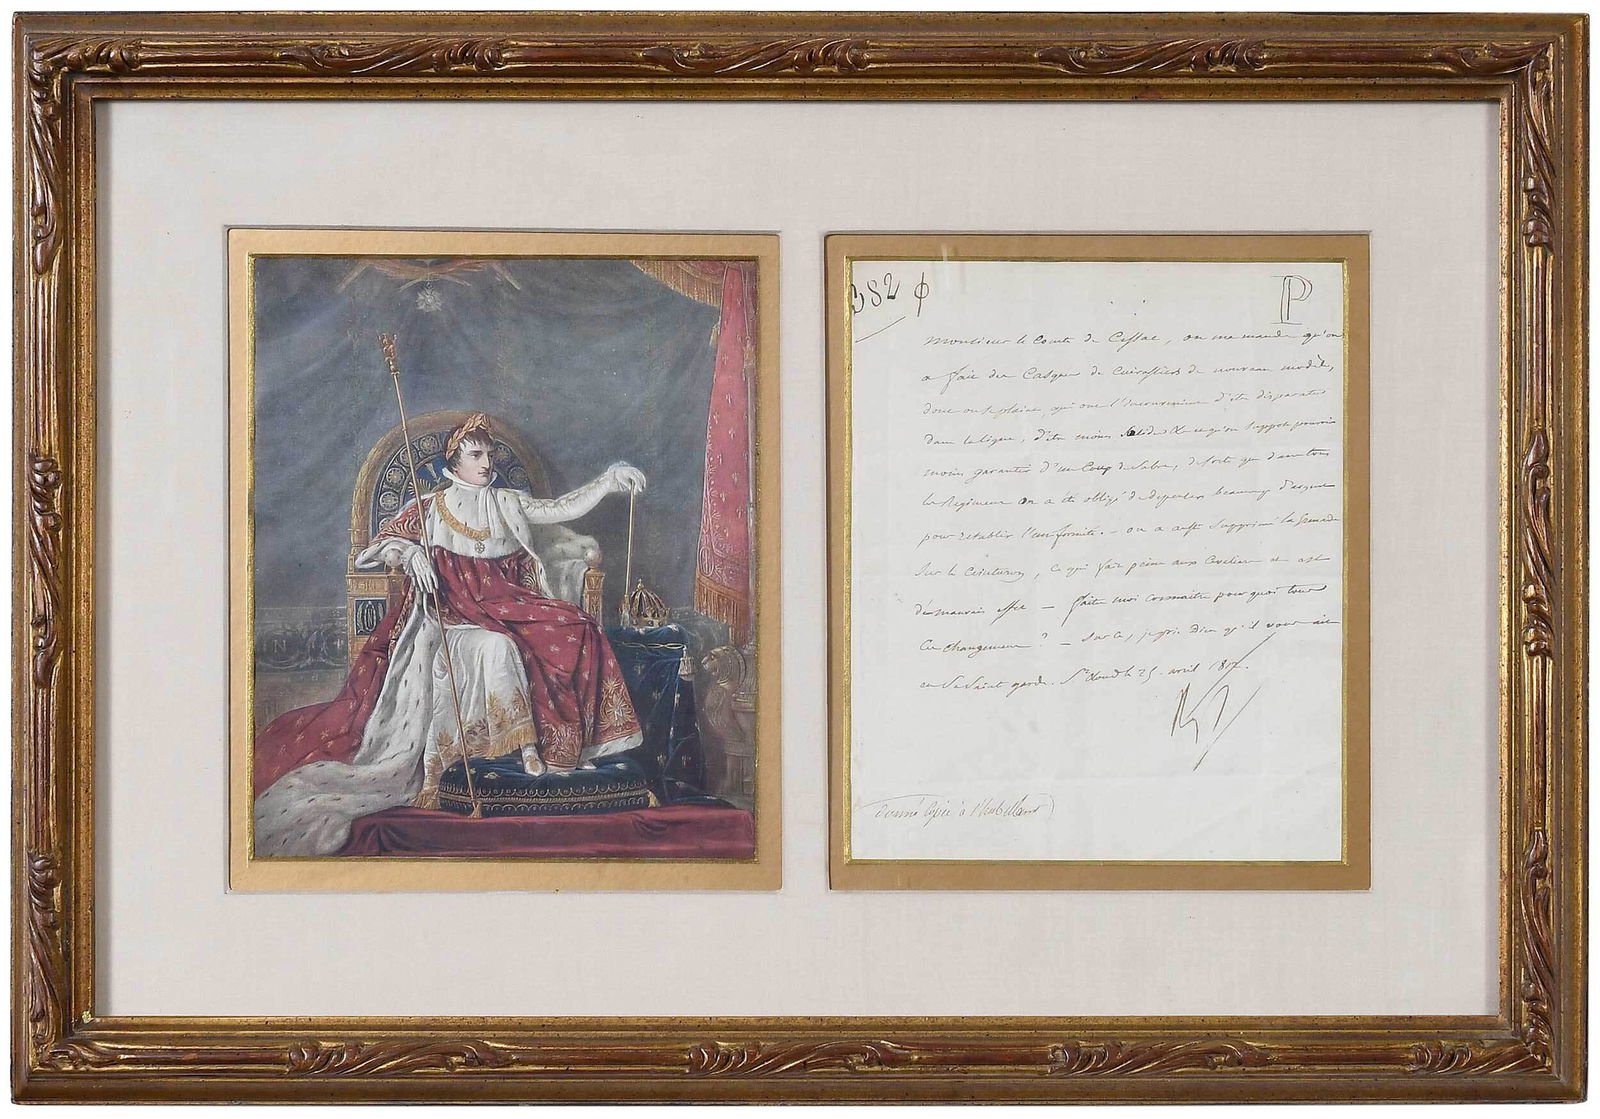 382 φ
P
Monsieur le Comte de Cessac, on me mande qu'on
a fait des Casques de Cuirassiers de nouveau modèle,
dont on se plaint, qui ont l'inconvénient d'être disparates
dans la ligne, d'être moins solides &
moins garantir d'un Coup de Sabre, de sorte que dans tous
les Régimens on a été obligé de dépenser beaucoup d'argent
pour rétablir l'uniformité. - on a aussi supprimé la Grenade
sur le Ceinturon, ce qui fait peine aux Cavaliers et est
de mauvais effet — faites moi connaitre pourquoi tous
ces changemens ? — Sur ce, je prie Dieu qu'il vous ait
en Sa Sainte garde. St Cloud le 25 avril 181
Np
donné copie à l'habillement